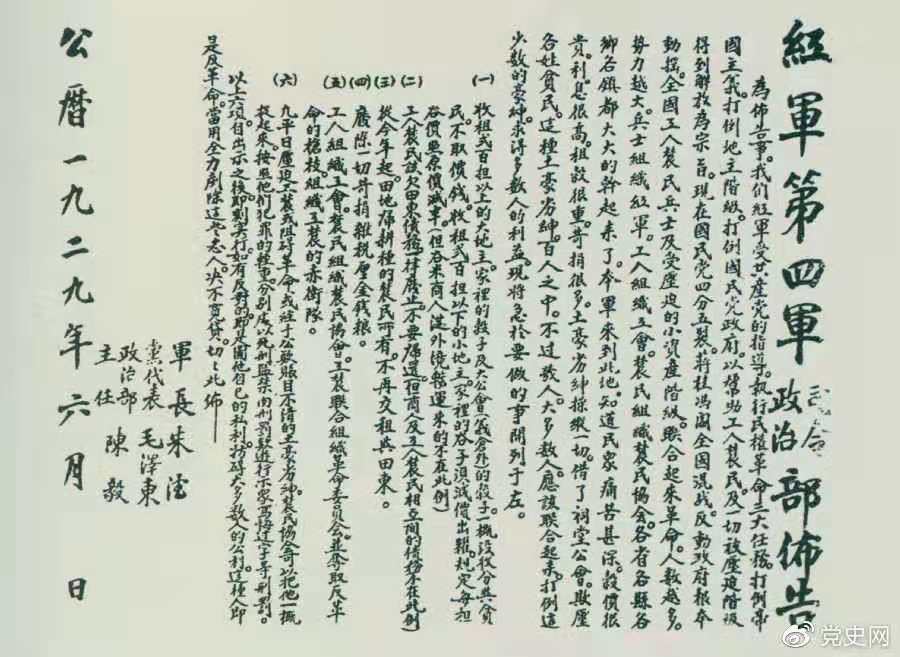 紅軍第四軍司令政治部佈告
為佈告事。我們紅軍受共產党的指導。執行民權革命三大任務。打倒帝
國主義。打倒地主階級。打倒國民党政府。以幫助工人農民及一切被壓迫階級
得到解放為宗旨。現在國民党四分五裂。蔣桂馮閻全國混战。反動政府根本
動搖。全國工人農民兵士及受壓迫的小資產階級。聯合起來革命。人數越多。
勢力越大。兵士組織紅軍。工人組織工會。農民組織農民協会。各省各縣各
鄉各鎮都大大的幹起來了。本軍來到此地。知道民眾痛苦甚深。穀價很
貴。利息很高。租穀很重。苛捐很多。土豪劣紳操縱一切。借了祠堂公會。欺壓
各姓貧民。這種土豪劣紳。百人之中。不过数人。大多数人。應該联合起來。打倒這
少数的豪紳。求得多数人的利益。現將急於要做的事開列于左。
(一)收租弍百担以上的大地主。家裡的穀子及大公會(義倉外)的穀子。一概没收分與貧
民。不取價钱。收租弍百担以下的小地主。家裡的谷子須減價出糶。規定每担
谷價照原價減半。(但谷米商人從外境辦運来的不在此例)
(二)工人農民該欠田東債務。一律廢止。不要歸還。(但商人及工人農民相互間的債務不在此例)
(三)從今年起。田地歸耕種的農民所有。不再交租與田東。
(四)廢除一切苛捐雜税厘金钱粮。
(五)工人組織工會。農民組織農民協會。工農联合組織革命委員会。並奪取反革
命的槍枝。組織工農的赤衛隊。
(六)凡平日壓迫工農或阻碍革命。或经手公款賬目不清的土豪劣紳。農民協會可以把他一概
捉起來。按照他們犯罪的輕重。分别處以死刑監禁肉刑罰款遊行示眾寫悔过字等刑罰。
以上六項自出示之後。即刻実行。如有反對的。即是圖他自己的私利。妨碍大多数人的公利。這種人即
是反革命。當用全力剷除這些惡人。决不寬貸。切々此佈——
軍長朱德
黨代表毛澤東
政治部主任陳毅
公曆一九二九年六月 日
党史网